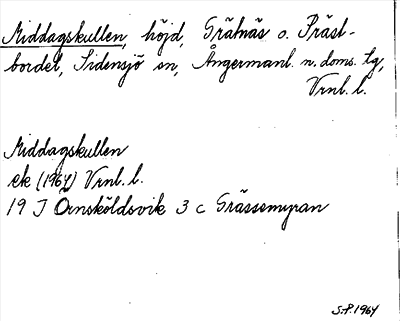 Middagskullen, höjd, Grälnäs o. Präst-
bordet, Sidensjö sn, Ångermanl. n. doms. tg,
Vrnl. l.
Middagskullen
ek (1964) Vrnl. l.
19 J Örnsköldsvik 3 c Grässemyran
S.P. 1964